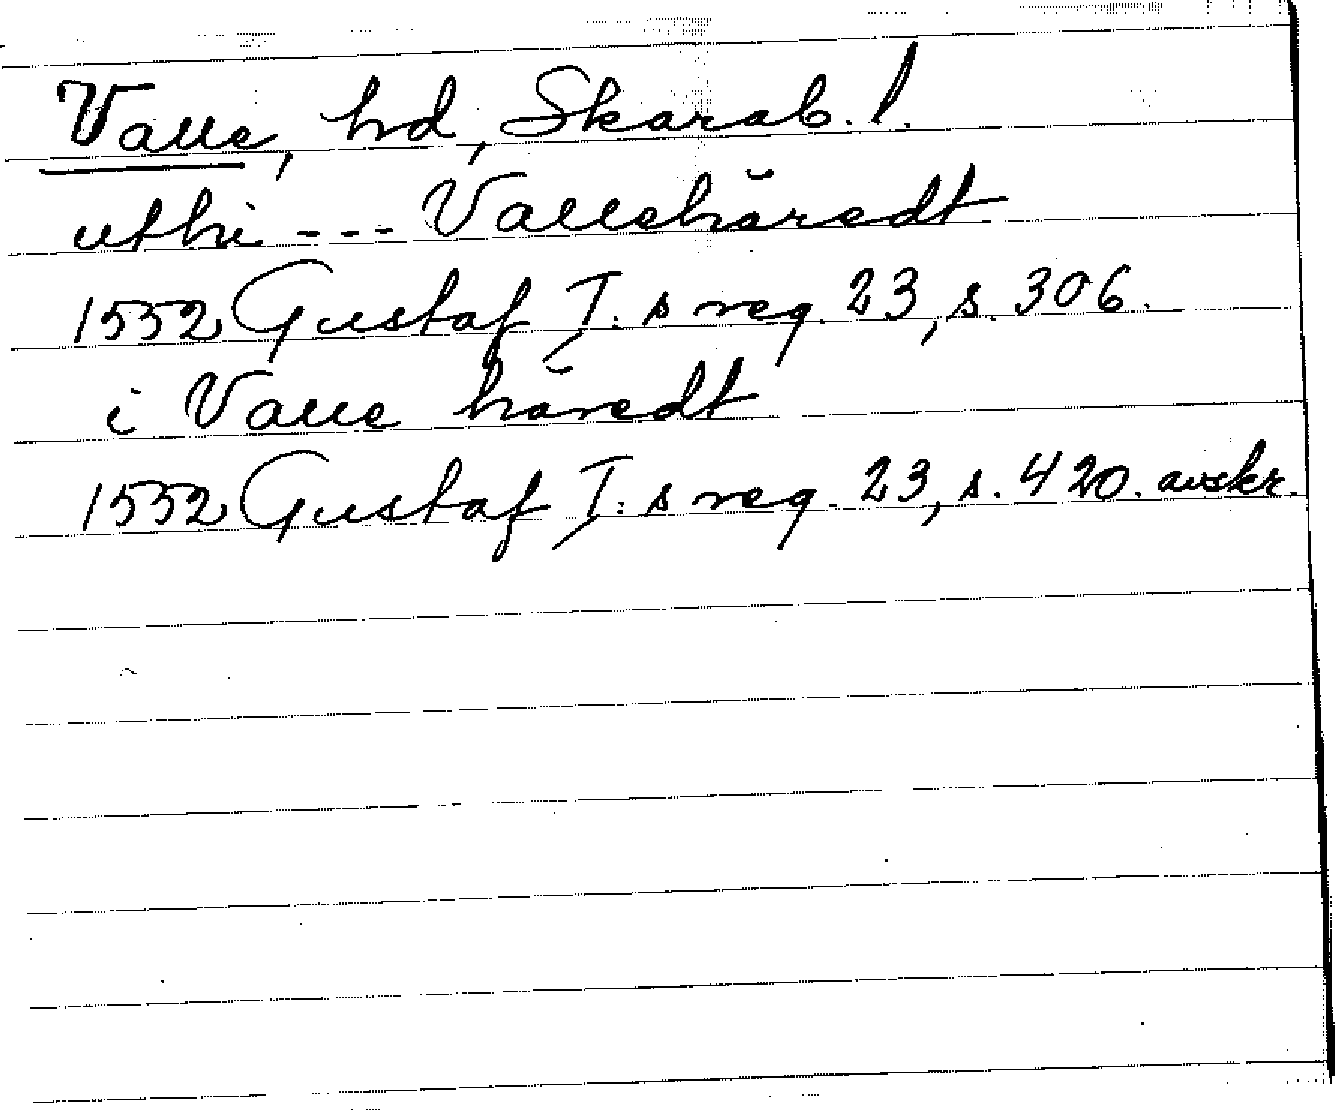 Valle, hd, Skarab. l.
uthi --- Vallehäredt
1552 Gustaf I:s reg. 23, s. 306.
i Valle häredt
1552 Gustaf I:s reg. 23, s. 420. avskr.